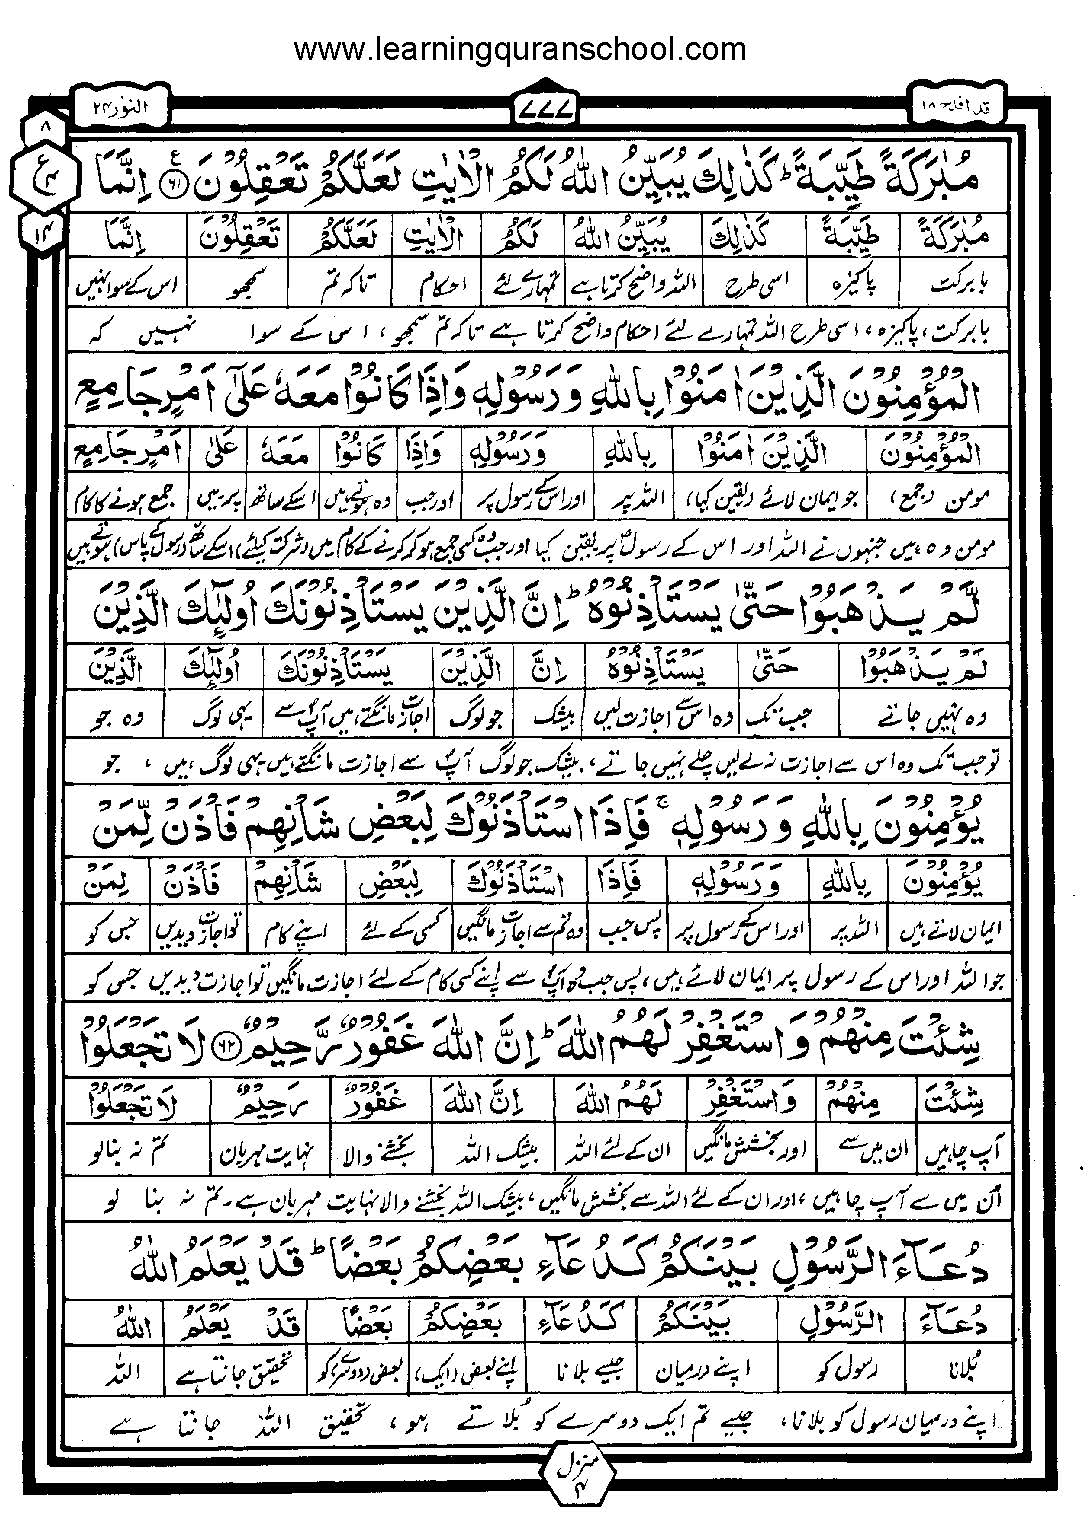 www.learningquranschool.com
قد افلح ۱۸
۷۷۷
النور ۲۴
۸
ع
۴
۱۴
مُبٰرَكَةً طَيِّبَةً ؕ كَذٰلِكَ يُبَيِّنُ اللّٰهُ لَكُمُ الْاٰيٰتِ لَعَلَّكُمْ تَعْقِلُوْنَ ۶۱ اِنَّمَا
مُبٰرَكَةً طَيِّبَةً كَذٰلِكَ يُبَيِّنُ اللّٰهُ لَكُمُ الْاٰيٰتِ لَعَلَّكُمْ تَعْقِلُوْنَ اِنَّمَا
بابرکت پاکیزہ اسی طرح اللہ واضح کرتا ہے تمہارے لئے احکام تاکہ تم سمجھو اس کے سوا نہیں
بابرکت، پاکیزہ، اسی طرح اللہ تمہارے لئے احکام واضح کرتا ہے تاکہ تم سمجھو، اس کے سوا نہیں کہ
الْمُؤْمِنُوْنَ الَّذِيْنَ اٰمَنُوْا بِاللّٰهِ وَرَسُوْلِهٖ وَاِذَا كَانُوْا مَعَهٗ عَلٰٓى اَمْرٍ جَامِعٍ
الْمُؤْمِنُوْنَ الَّذِيْنَ اٰمَنُوْا بِاللّٰهِ وَرَسُوْلِهٖ وَاِذَا كَانُوْا مَعَهٗ عَلٰى اَمْرٍ جَامِعٍ
مومن (جمع) جو ایمان لائے (یقین کیا) اللہ پر اور اس کے رسول پر اور جب وہ ہوتے ہیں اسکے ساتھ پر میں جمع ہونے کا کام
مومن وہ ہیں جنہوں نے اللہ اور اس کے رسولؐ پر یقین کیا اور جب وہ کسی جمع ہو کر کرنے کے کام میں (شرکت کیلئے) اسکے ساتھ (رسولؐ کے پاس) ہوتے ہیں
لَّمْ يَذْهَبُوْا حَتّٰى يَسْتَاْذِنُوْهُ ؕ اِنَّ الَّذِيْنَ يَسْتَاْذِنُوْنَكَ اُولٰٓئِكَ الَّذِيْنَ
لَمْ يَذْهَبُوْا حَتّٰى يَسْتَاْذِنُوْهُ اِنَّ الَّذِيْنَ يَسْتَاْذِنُوْنَكَ اُولٰٓئِكَ الَّذِيْنَ
وہ نہیں جاتے جب تک وہ اس سے اجازت لیں بیشک جو لوگ اجازت مانگتے ہیں آپؐ سے یہی لوگ وہ جو
تو جب تک وہ اس سے اجازت نہ لے لیں چلے نہیں جاتے، بیشک جو لوگ آپؐ سے اجازت مانگتے ہیں یہی لوگ ہیں، جو
يُؤْمِنُوْنَ بِاللّٰهِ وَرَسُوْلِهٖ ۚ فَاِذَا اسْتَاْذَنُوْكَ لِبَعْضِ شَاْنِهِمْ فَاْذَنْ لِّمَنْ
يُؤْمِنُوْنَ بِاللّٰهِ وَرَسُوْلِهٖ فَاِذَا اسْتَاْذَنُوْكَ لِبَعْضِ شَاْنِهِمْ فَاْذَنْ لِمَنْ
ایمان لاتے ہیں اللہ پر اور اس کے رسول پر پس جب وہ تم سے اجازت مانگیں کسی کے لئے اپنے کام تو اجازت دیدیں جس کو
جو اللہ اور اس کے رسول پر ایمان لائے ہیں، پس جب وہ آپؐ سے اپنے کسی کام کے لئے اجازت مانگیں تو اجازت دیدیں جس کو
شِئْتَ مِنْهُمْ وَاسْتَغْفِرْ لَهُمُ اللّٰهَ ؕ اِنَّ اللّٰهَ غَفُوْرٌ رَّحِيْمٌ ۶۲ لَا تَجْعَلُوْا
شِئْتَ مِنْهُمْ وَاسْتَغْفِرْ لَهُمُ اللّٰهَ اِنَّ اللّٰهَ غَفُوْرٌ رَحِيْمٌ لَا تَجْعَلُوْا
آپ چاہیں ان میں سے اور بخشش مانگیں ان کے لئے اللہ بیشک اللہ بخشنے والا نہایت مہربان تم نہ بنالو
ان میں سے آپ چاہیں، اور ان کے لئے اللہ سے بخشش مانگیں، بیشک اللہ بخشنے والا نہایت مہربان ہے۔ تم نہ بنا لو
دُعَآءَ الرَّسُوْلِ بَيْنَكُمْ كَدُعَآءِ بَعْضِكُمْ بَعْضًا ؕ قَدْ يَعْلَمُ اللّٰهُ
دُعَآءَ الرَّسُوْلِ بَيْنَكُمْ كَدُعَآءِ بَعْضِكُمْ بَعْضًا قَدْ يَعْلَمُ اللّٰهُ
بُلانا رسول کو اپنے درمیان جیسے بلانا اپنے بعض (ایک) بعض (دوسرے) کو تحقیق جانتا ہے اللہ
اپنے درمیان رسول کو بلانا، جیسے تم ایک دوسرے کو بُلاتے ہو، تحقیق اللہ جانتا ہے
منزل ۴